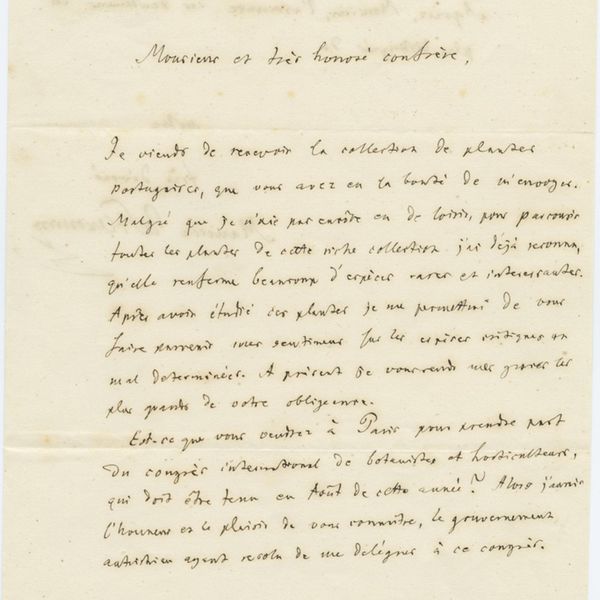 Monsieur et très honoré confrère,
Je viends de recevoir la collection de plantes
portugaises, que vous avez eu la bonté de m'envoyer.
Malgré que je n'aie pas encore eu de loisir, pour parcourir
toutes les plantes de cette riche collection j'ai déjà reconnu,
qu'elle renferme beaucoup d'espèces rares et interessantes.
Après avoir étudié ces plantes je me permettrai de vous
faire parvenir mes sentimens sur les espèces critiques ou
mal determinées. A présent je vous rends mes graces les
plus grands de votre obligeance.
Est-ce que vous viendrez à Paris pour prendre part
du congrès international de botanistes et horticulteurs,
qui doit être tenu en Août de cette année? Alors j'aurais
l'honneur et le plaisir de vous connaître, le gouvernement
autrichien ayant resolu de me déléguer à ce congrès.